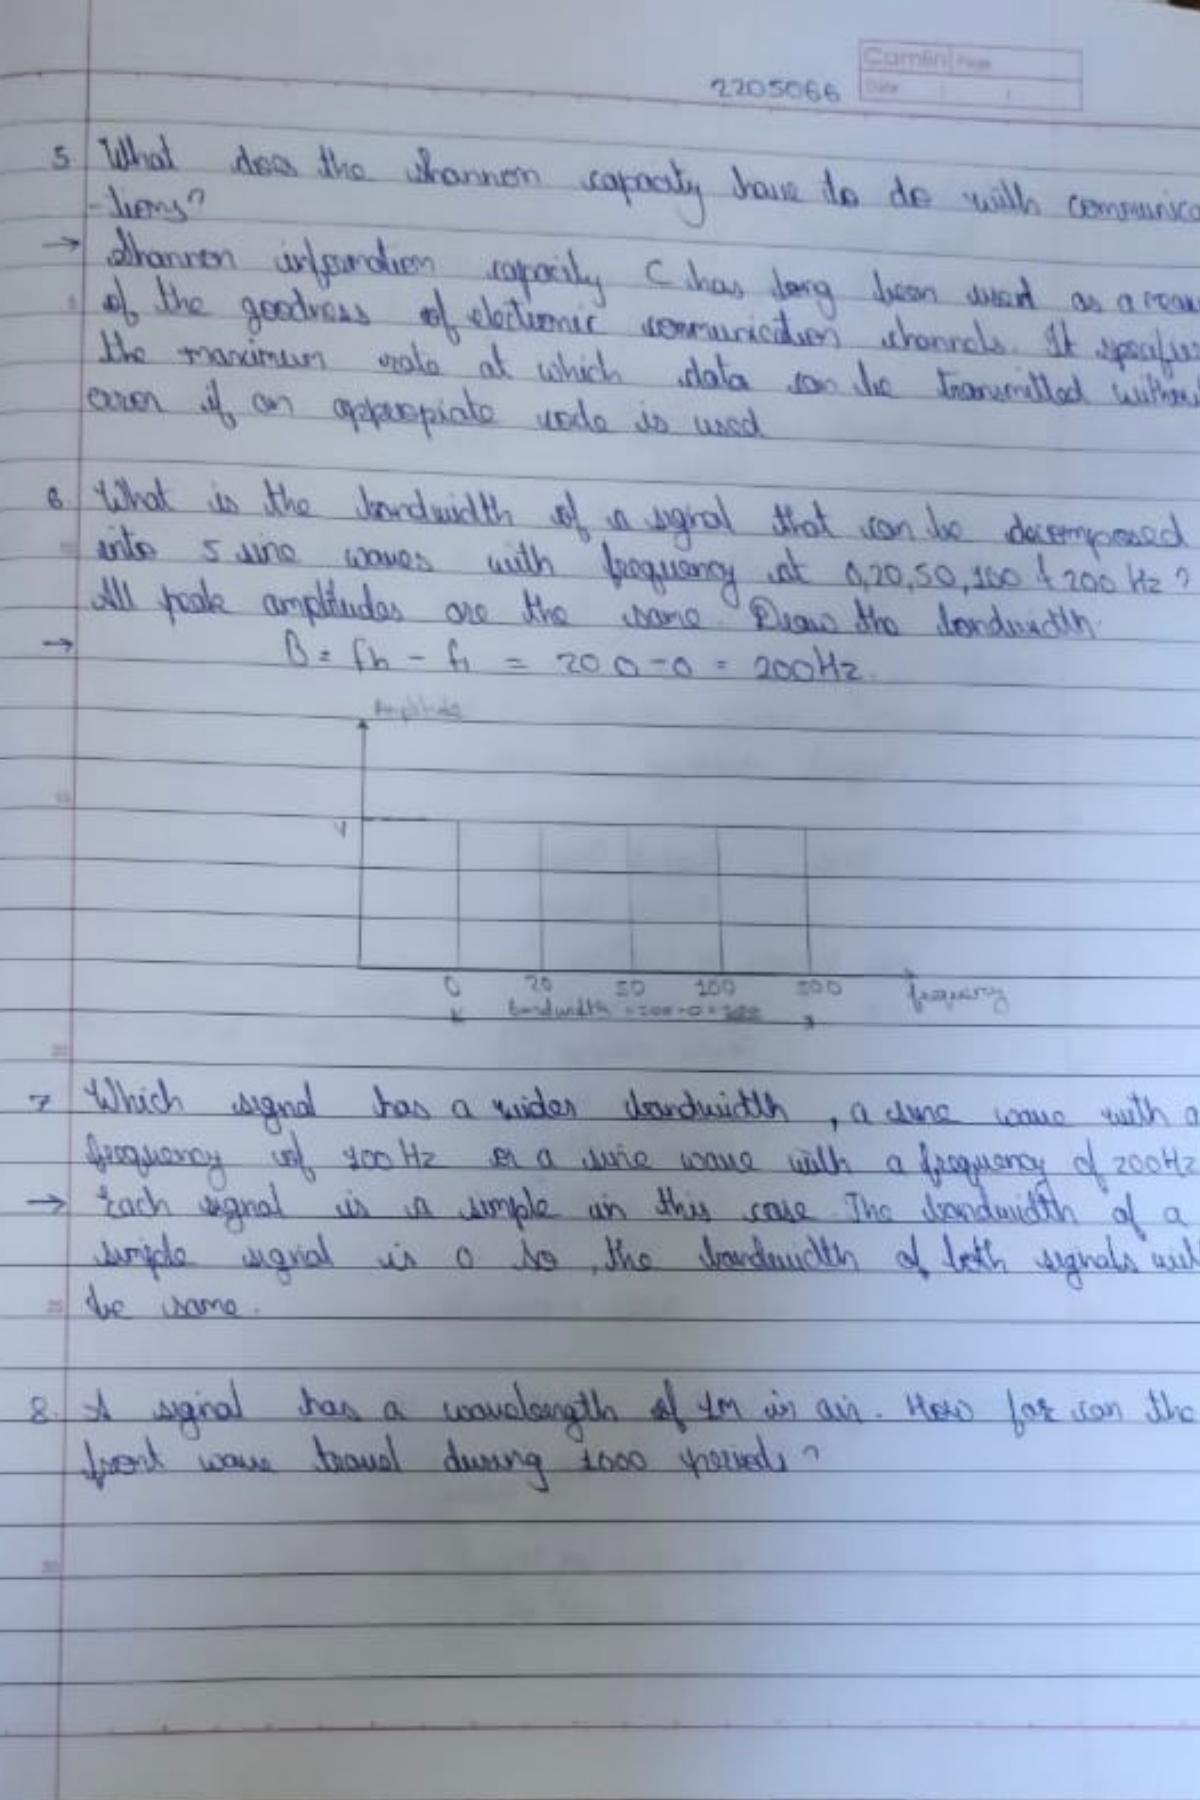 Camlin Page
Date
2205066
5 What does the shannon capacity have to do with communica
-tions?
→ Shannon information capacity C has long been used as a mea
of the goodness of electronic communication channels. It specifies
the maximum rate at which data can be transmitted without
error if an appropriate code is used
6 What is the bandwidth of a signal that can be decomposed
into 5 sine waves with frequency at 0,20,50,100 & 200 Hz?
All peak amplitudes are the same. Draw the bandwidth.
→ B = fh - f1 = 200-0 = 200Hz.
Amplitude
V
0 20 50 100 frequency
bandwidth = 200-0 = 200
7 Which signal has a wider bandwidth, a sine wave with a
frequency of 100Hz or a sine wave with a frequency of 200Hz
→ Each signal is a simple in this case. The bandwidth of a
simple signal is 0 So, the bandwidth of both signals will
be same.
8. A signal has a wavelength of 1M in air. How far can the
front wave travel during 1000 periods?